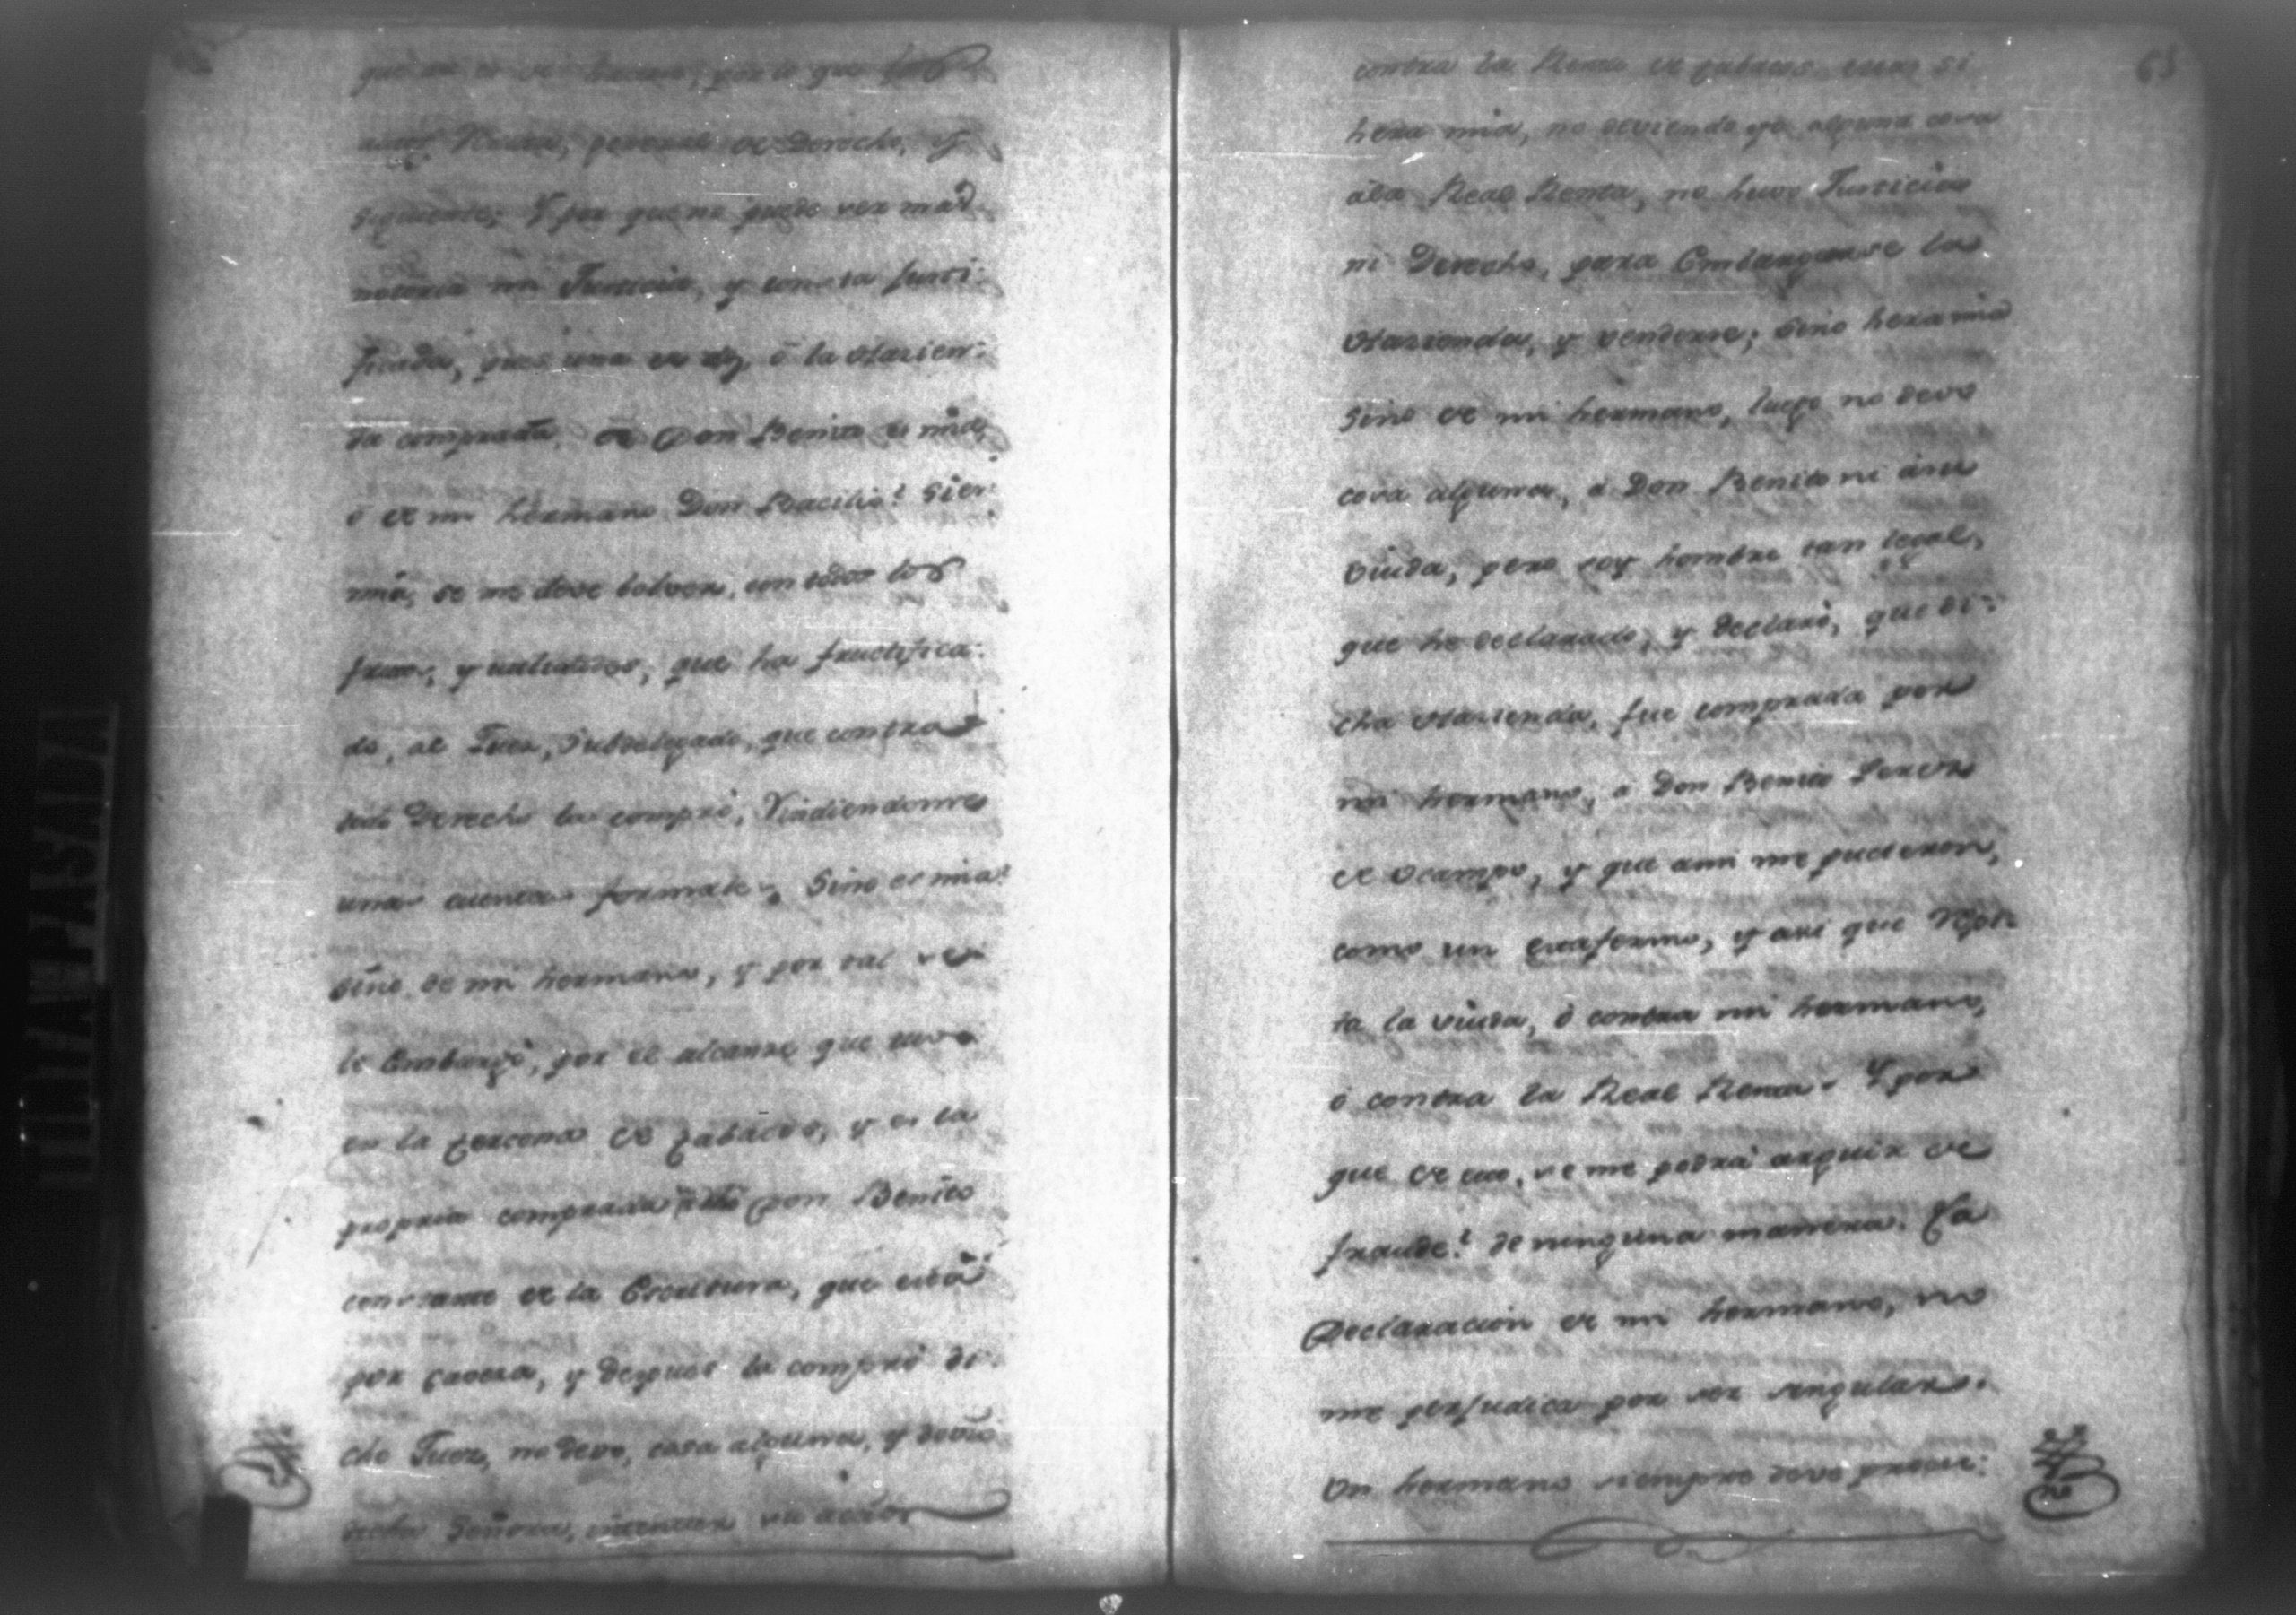 que no por lo que los
autos de Derecho, y
siguiente; Y por que no puede ser mas
notoria mi Justicia, y con esta justi-
ficada, pues una de dos, ó la Hazien-
da comprada, de Don Benito es mia,
ó de mi hermano Don Bacilio? Si es
mia, se me deve bolver, con todos los
frutos, y que ha fructifica-
do, al Juez, Subdelegado, que contra
todo Derecho la compró, Rindiendome
una cuenta formal; Sino es mia?
Sino de mi hermano, y por tal se
le Embargó, por el alcanse que tuvo
en la Tercena de Tabacos, y es la
propria comprada Don Benito
constante de la Escritura, que está
por Caveza, y despues la compró di-
cho Juez, no devo, cosa alguna, y devió
dicha Señora, su accion
contra la Renta de Tabacos si
hera mia, no deviendo yo alguna cosa
ála Real Renta, no huvo Justicia
ni Derecho, para Embargarse la
Hazienda, y venderse; Sino hera mia
Sino de mi hermano, luego no devo
cosa alguna, á Don Benito ni ásu
viuda, pero soy hombre tan legal,
que he declarado, y declaro, que di-
cha Hazienda, fue comprada por
mi hermano, á Don Benito Perez
de Ocampo, y que ami me pucieron,
como un y asi que
ta la viuda, ó contra mi hermano,
ó contra la Real Renta. Y por
que de eso, se me podrá arguir de
fraude? de ninguna manera. La
Declaracion de mi hermano, no
me perjudica por ser singular.
Un hermano siempre deve